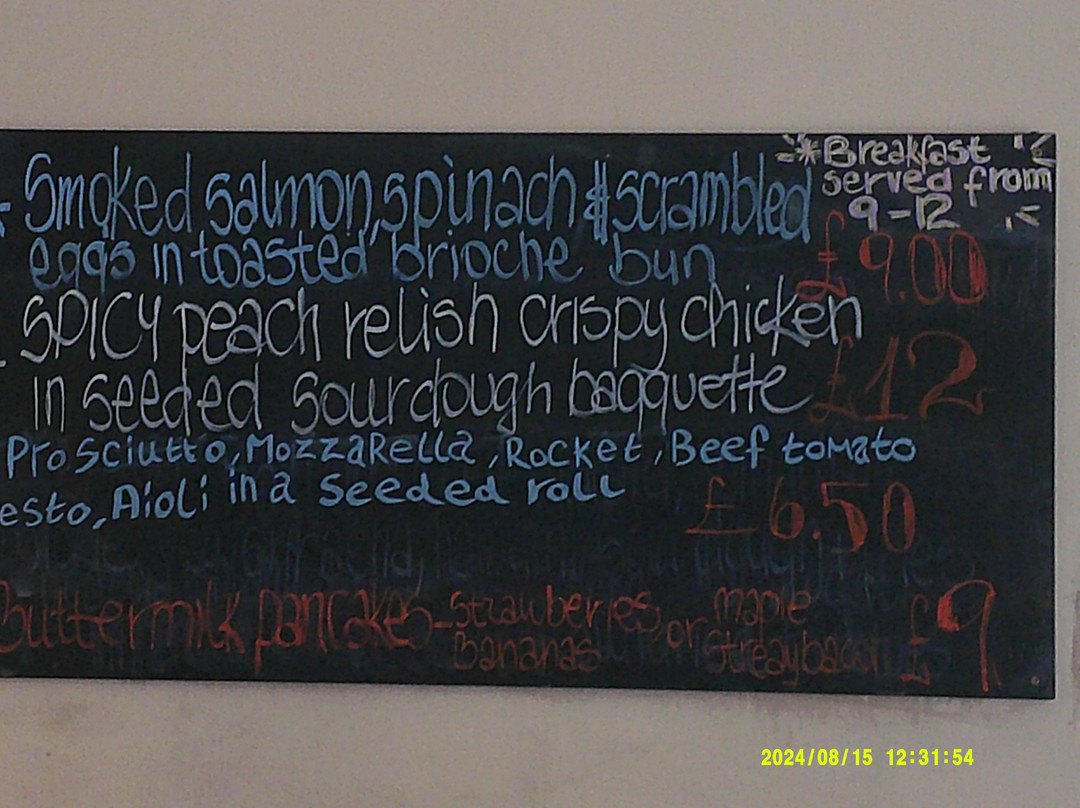 *Breakfast
served from
9-12
Smoked salmon, spinach & scrambled
eggs in toasted brioche bun £9.00
SPICY peach relish crispy chicken
in seeded sourdough bagquette £12
Prosciutto, Mozzarella, Rocket, Beef tomato
esto, Aioli in a seeded roll £6.50
Buttermilk pancakes - strawberries, or maple £9
bananas streaybacon
2024/08/15 12:31:54